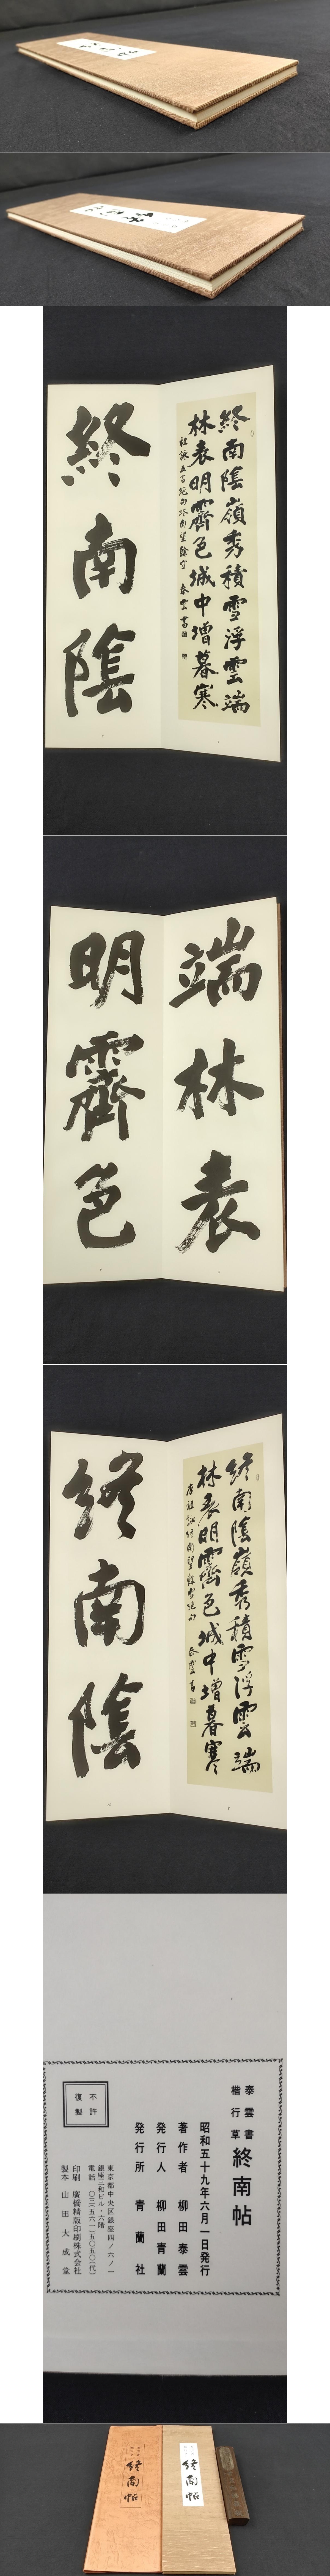 終南陰嶺秀積雪浮雲端
林表明霽色城中增暮寒
祖詠五言絶句終南望餘雪 泰雲書
終南陰
端林表
明霽色
終南陰嶺秀積雪浮雲端
林表明霽色城中增暮寒
唐祖詠終南望餘雪絶句 泰雲書
終南陰
泰雲書
楷行草
終南帖
昭和五十九年六月一日発行
著作者 柳田泰雲
発行人 柳田青蘭
発行所 青蘭社
東京都中央区銀座四ノ六ノ一
銀座三和ビル・六階
電話 〇三(五六一)五〇五〇(代)
印刷 廣橋精版印刷株式会社
製本 山田大成堂
不許
復製
終南帖
終南帖